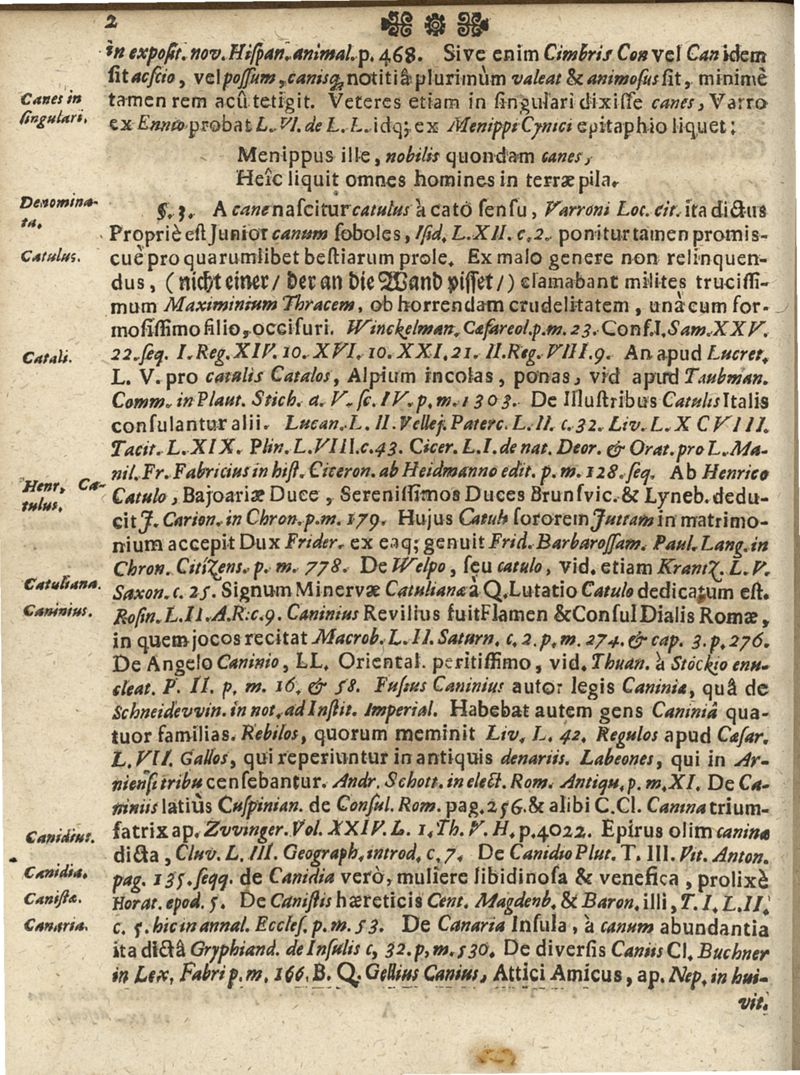 2
in exposit. nov. Hispan. animal. p. 468. Sive enim Cimbris Con vel Can idem
sit ac scio, vel possum, canisq; notitiâ plurimùm valeat & animosus sit, minimè
Canes in
singulari.
tamen rem acû tetigit. Veteres etiam in singulari dixisse canes, Varro
ex Ennio probat L. VI. de L. L. idq; ex Menippi Cynici epitaphio liquet:
Menippus ille, nobilis quondam canes,
Heîc liquit omnes homines in terræ pila.
Denomina-
ta.
§. 3. A cane nascitur catulus à cato sensu, Varroni Loc. cit. ita dictus
Propriè est Junior canum soboles, Isid. L. XII. c. 2. ponitur tamen promis-
Catulus.
cuè pro quarumlibet bestiarum prole. Ex malo genere non relinquen-
dus, (nicht einer/ der an die Wand pisset/) clamabant milites trucissi-
mum Maximinium Thracem, ob horrendam crudelitatem, unà cum for-
mosissimo filio, occisuri. Winckelman. Cæsareol. p. m. 23. Conf. I. Sam. XXV.
Catali.
22. seq. I. Reg. XIV. 10. XVI. 10. XXI. 21. II. Reg. VIII. 9. An apud Lucret.
L. V. pro catulis Catalos, Alpium incolas, ponas, vid apud Taubman.
Comm. in Plaut. Stich. a. V. sc. IV. p. m. 1303. De Illustribus Catulis Italis
consulantur alii. Lucan. L. II. Vellej. Paterc. L. II. c. 32. Liv. L. XCVIII.
Tacit. L. XIX. Plin. L. VIII. c. 43. Cicer. L. I. de nat. Deor. & Orat. pro L. Ma-
nil. Fr. Fabricius in hist. Ciceron. ab Heidmanno edit. p. m. 128. seq. Ab Henrico
Henr. Ca-
tulus.
Catulo, Bajoariæ Duce, Serenissimos Duces Brunsvic. & Lyneb. dedu-
cit J. Carion. in Chron. p. m. 179. Hujus Catuli sororem Juttam in matrimo-
nium accepit Dux Frider. ex eaq; genuit Frid. Barbarossam. Paul. Lang. in
Chron. Citizens. p. m. 778. De Welpo, seu catulo, vid. etiam Krantz. L. V.
Catuliana.
Saxon. c. 25. Signum Minervæ Catuliana à Q. Lutatio Catulo dedicatum est.
Caninius.
Rosin. L. II. A. R. c. 9. Caninius Revilius fuit Flamen & Consul Dialis Romæ,
in quem jocos recitat Macrob. L. II. Saturn. c. 2. p. m. 274. & cap. 3. p. 276.
De Angelo Caninio, LL. Oriental. peritissimo, vid. Thuan. à Stöckio enu-
cleat. P. II. p. m. 16. & 58. Fusius Caninius autor legis Caninia, quâ de
Schneidevvin. in not. ad Instit. Imperial. Habebat autem gens Caninia qua-
tuor familias. Rebilos, quorum meminit Liv. L. 42. Regulos apud Cæsar.
L. VII. Gallos, qui reperiuntur in antiquis denariis. Labeones, qui in Ar-
niensi tribu censebantur. Andr. Schott. in elect. Rom. Antiqu. p. m. XI. De Ca-
niniis latiùs Cuspinian. de Consul. Rom. pag. 256. & alibi C. Cl. Canina trium-
Canidius.
fatrix ap. Zvvinger. Vol. XXIV. L. 1. Th. V. H. p. 4022. Epirus olim canina
dicta, Cluv. L. III. Geograph. introd. c. 7. De Canidio Plut. T. III. Vit. Anton.
Canidia.
pag. 135. seqq. de Canidia verò, muliere libidinosa & venefica, prolixè
Canistæ.
Horat. epod. 5. De Canistis hæreticis Cent. Magdenb. & Baron. illi, T. I. L. II.
Canaria.
c. 5. hic in annal. Eccles. p. m. 53. De Canaria Insula, à canum abundantia
ita dictâ Gryphiand. de Insulis c. 32. p. m. 530. De diversis Caniis Cl. Buchner
in Lex. Fabri p. m. 166. B. Q. Gellius Canius, Attici Amicus, ap. Nep. in hui-
vit.